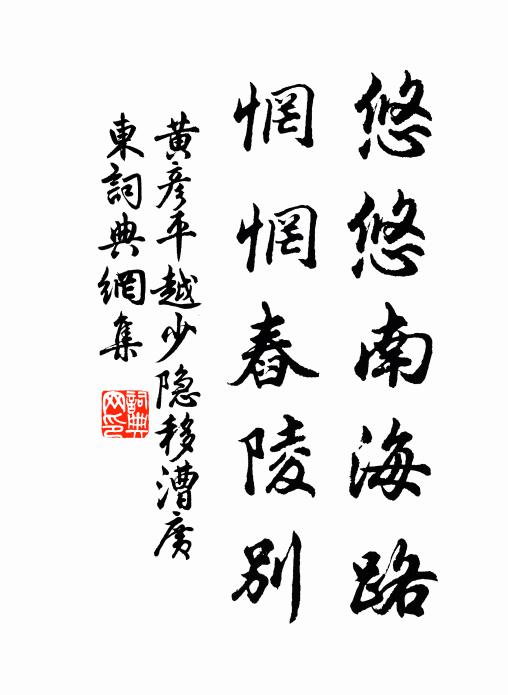 悠悠南海路
惘惘舂陵别
黄彦平越少隐移漕廣
東詞典網集
詞典网印